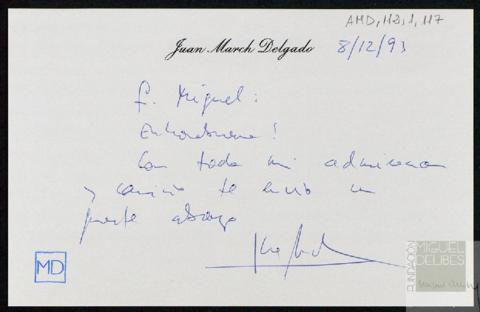 AMD, 112, 1, 117
Juan March Delgado
8/12/93
Q. Miguel:
Enhorabuena!
Con toda mi admiracion
y cariño te envio un
fuerte abrazo
MD
FUNDACIÓN
MIGUEL
DELIBES